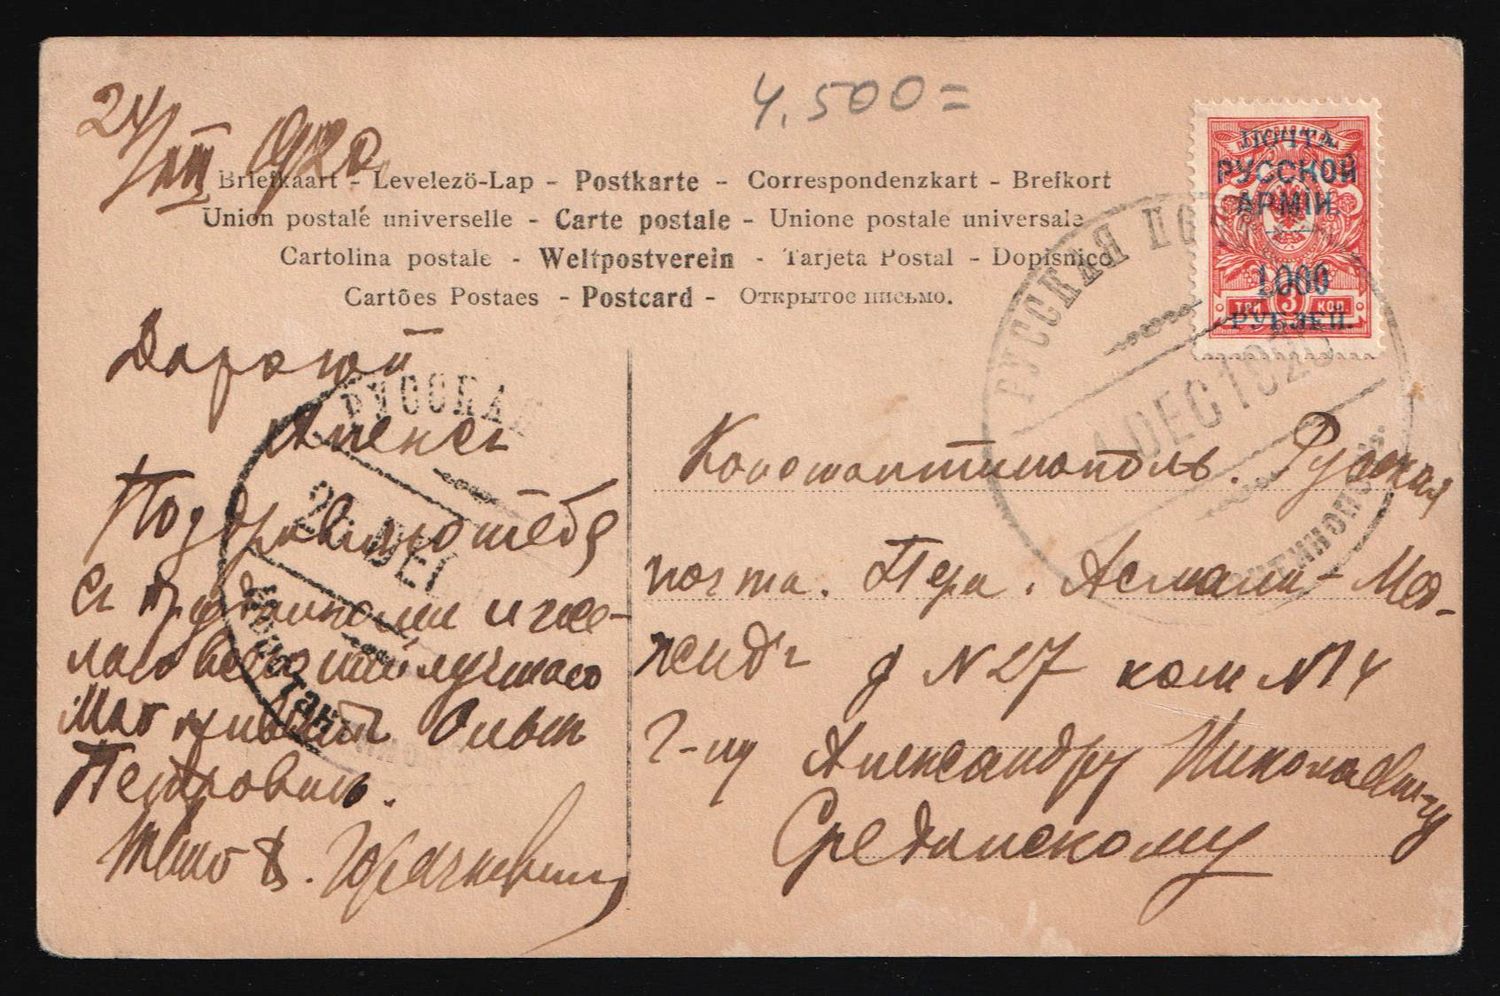 24/XII 1920
4.500=
Briefkaart - Levelezö-Lap - Postkarte - Correspondenzkart - Brefkort
Union postale universelle - Carte postale - Unione postale universale
Cartolina postale - Weltpostverein - Tarjeta Postal - Dopisnice
Cartões Postaes - Postcard - Открытое письмо.
ПОЧТА
РУССКОЙ
АРМІИ.
1.000
РУБЛЕЙ.
ТРИ 3 КОП
РУССКАЯ ПО
DEC 1920
РУССКАЯ
DEC
Дорогой
Алексѣ
Поздравляю тебѣ
съ праздниками и же-
лаю всего лучшаго
Петровичъ.
Твой В.
Константинополь. Русская
почта. Пера.
д N 27 ком N 14
Г-ну Александру Николаевичу
Срединскому